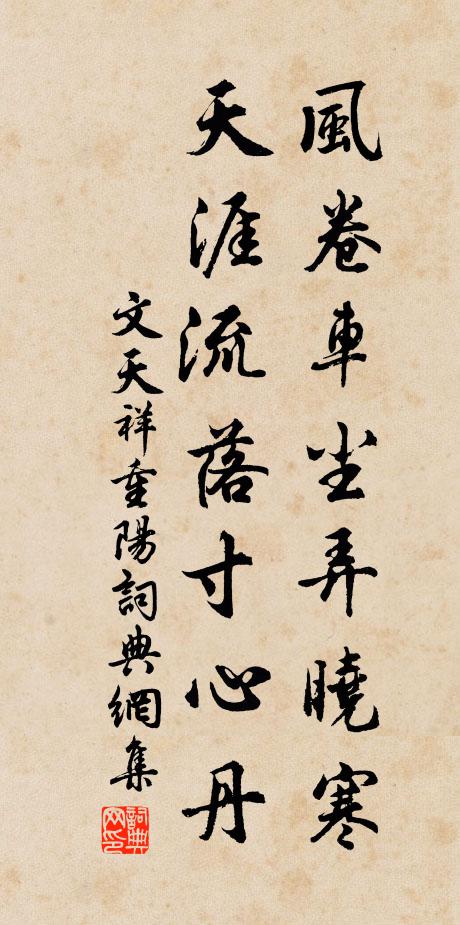 風卷車尘弄曉寒
天涯流落寸心丹
文天祥重陽詞典網集
詞典网印